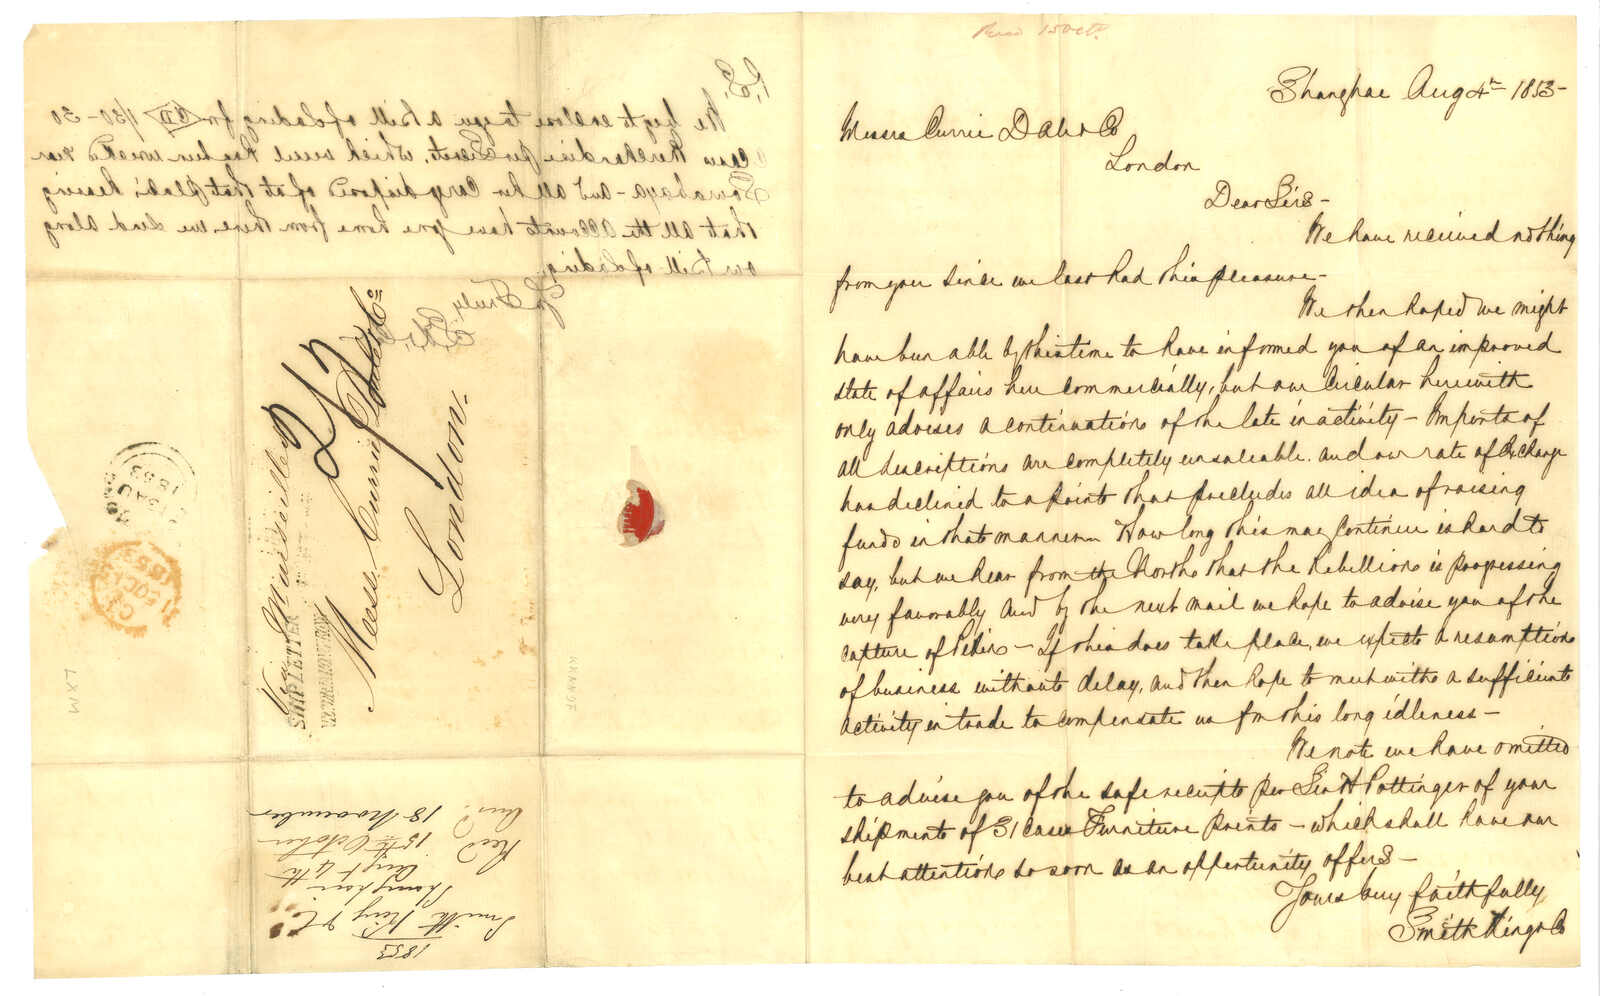 Recd 15 Oct.
Shanghae Aug 4th 1853-
Messrs Currie Dale & Co
London
Dear Sirs-
We have received nothing
from you since we last had this pleasure-
We then hoped we might
have been able by this time to have informed you of an improved
state of affairs here commercially, but our Circular herewith
only advises a continuations of the late inactivity - Imports of
all descriptions are completely unsaleable. and our rate of Exchange
has declined to a point that precludes all idea of raising
funds in that manner- How long this may continue is hard to
say, but we hear from the North that the Rebellion is progressing
very favorably and by the next mail we hope to advise you of the
capture of Pekin - If this does take place, we expect a resumption
of business without delay, and then hope to meet with a sufficient
activity in trade to compensate us for this long idleness-
We note we have omitted
to advise you of the safe receipt per Sir H Pottinger of your
shipment of 31 cases Furniture prints - which shall have our
best attention so soon as an opportunity offers-
Yours very faithfully
Smith King & Co
P.S.
We beg to enclose to you a Bill of Lading for 1/30-30
Cases Merchandise per which vessel has been wrecked near
Sourabaya - and all her Cargo disposed of at that place, hearing
that all the accounts have gone home from there, we send along
our Bill of Lading.
Yrs Truly
S.K. & Co
Via Marseilles
SHIP LETTER
Messrs Currie Dale & Co
London.
1853
Smith King & Co
Shanghai
Augt 4th
Recd 15th October
Ansd 18 November
1853
1853
LXM